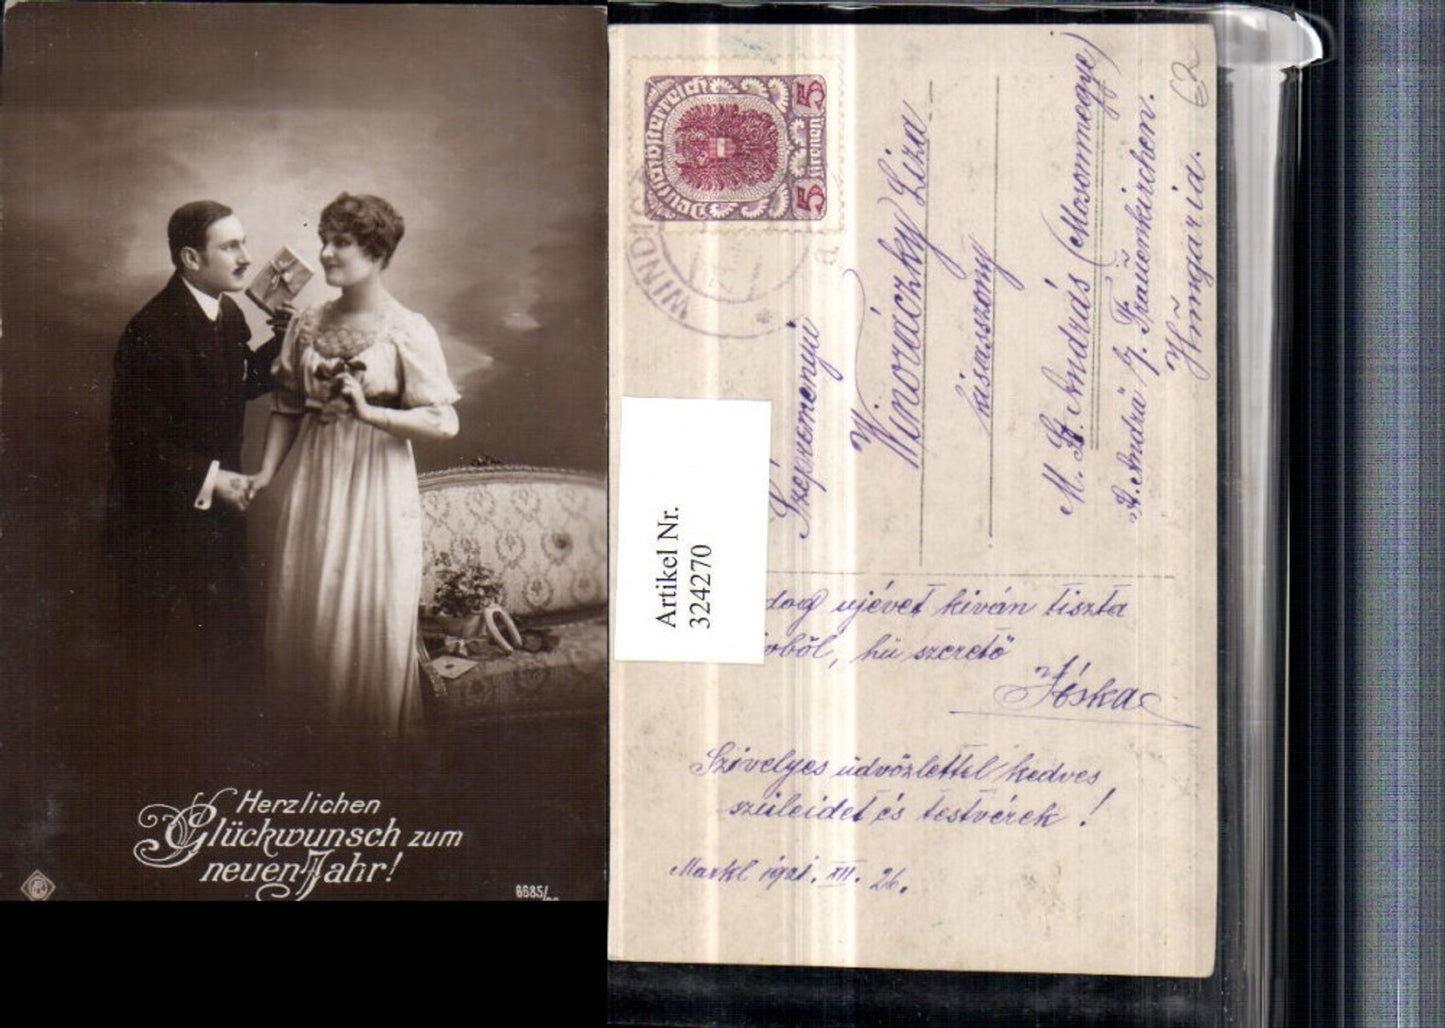 Herzlichen
Glückwunsch zum
neuen Jahr!
6685/
Deutschösterreich
5 Kronen 5
WINDISC
a
62
Artikel Nr.
324270
Winoráczky Liza
kisasszony
M. Sz. András (Mosonmegye)
St. Andrä b/. Frauenkirchen.
Hungaria.
dog ujévet kíván tiszta
vből, hü szerető
Jóska
Szívelyes üdvözlettel kedves
szüleidet és testvérek!
Markl 1921. XII. 26.